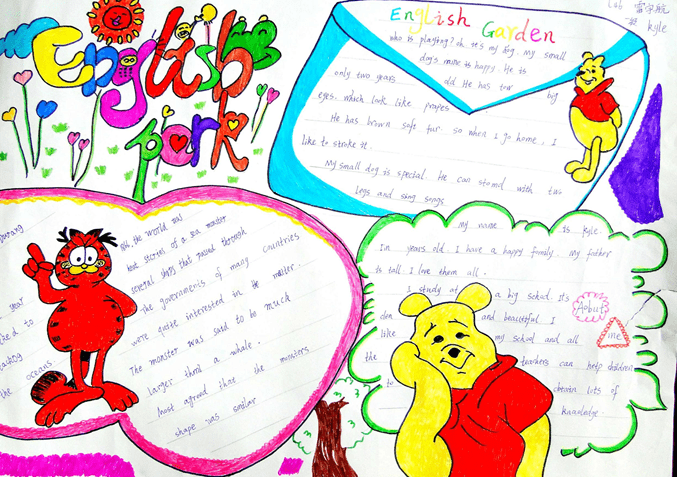 English
park
English Garden
126 雷尔航
kyle
who is playing? oh it's my dog. My small
dog's name is happy. He is
only two years old He has tow big
eyes. which look like
He has brown soft fur. so when I go home, I
like to stroke it.
My small dog is special. He can stand with tas
legs and sing songs
the world was
bout stories of a sea monster
several ships that passed through
year
The governments of many countries
were quite interested in the matter.
The monster was said to be much
the oceans.
larger thand a whale.
Most agreed that the monsters
shape was similar
my name is kyle.
Im years old. I have a happy family. My father
is tall. I love them all.
I study at a big school. Its
Aobut
den and beautiful. I
me
like my school and all
the teachers can help children
to obtain lots of
knowledge.